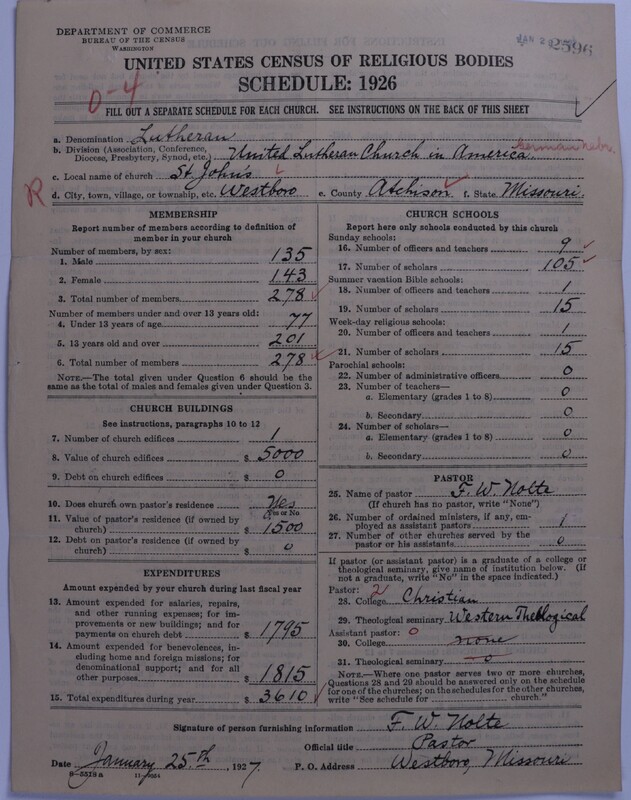 DEPARTMENT OF COMMERCE
BUREAU OF THE CENSUS
WASHINGTON
JAN 2 2596
UNITED STATES CENSUS OF RELIGIOUS BODIES
SCHEDULE: 1926
0-4
FILL OUT A SEPARATE SCHEDULE FOR EACH CHURCH. SEE INSTRUCTIONS ON THE BACK OF THIS SHEET
a. Denomination Lutheran
b. Division (Association, Conference, Diocese, Presbytery, Synod, etc.) United Lutheran Church in America. German Nebr.
c. Local name of church St. Johns
R
d. City, town, village, or township, etc. Westboro e. County Atchison f. State Missouri.
MEMBERSHIP
Report number of members according to definition of
member in your church
Number of members, by sex:
1. Male 135
2. Female 143
3. Total number of members 278
Number of members under and over 13 years old:
4. Under 13 years of age 77
5. 13 years old and over 201
6. Total number of members 278
NOTE.—The total given under Question 6 should be
same as the total of males and females given under Question 3.
CHURCH BUILDINGS
See instructions, paragraphs 10 to 12
7. Number of church edifices 1
8. Value of church edifices $ 5000
9. Debt on church edifices $ 0
10. Does church own pastor's residence Yes
(Yes or No)
11. Value of pastor's residence (if owned by
church) $ 1500
12. Debt on pastor's residence (if owned by
church) $ 0
EXPENDITURES
Amount expended by your church during last fiscal year
13. Amount expended for salaries, repairs,
and other running expenses; for im-
provements or new buildings; and for
payments on church debt $ 1795
14. Amount expended for benevolences, in-
cluding home and foreign missions; for
denominational support; and for all
other purposes $ 1815
15. Total expenditures during year $ 3610
CHURCH SCHOOLS
Report here only schools conducted by this church
Sunday schools:
16. Number of officers and teachers 9
17. Number of scholars 105
Summer vacation Bible schools:
18. Number of officers and teachers 1
19. Number of scholars 15
Week-day religious schools:
20. Number of officers and teachers 1
21. Number of scholars 15
Parochial schools:
22. Number of administrative officers 0
23. Number of teachers—
a. Elementary (grades 1 to 8) 0
b. Secondary 0
24. Number of scholars—
a. Elementary (grades 1 to 8) 0
b. Secondary 0
PASTOR
25. Name of pastor F. W. Nolte
(If church has no pastor, write "None")
26. Number of ordained ministers, if any, em-
ployed as assistant pastors 1
27. Number of other churches served by the
pastor or his assistants 0
If pastor (or assistant pastor) is a graduate of a college or
theological seminary, give name of institution below. (If
not a graduate, write "No" in the space indicated.)
Pastor: 2
28. College Christian
29. Theological seminary Western Theological
Assistant pastor: 0
30. College none
31. Theological seminary 0
NOTE.—Where one pastor serves two or more churches,
Questions 28 and 29 should be answered only on the schedule
for one of the churches; on the schedules for the other churches,
write "See schedule for church."
Signature of person furnishing information F. W. Nolte
Official title Pastor
Date January 25.th, 1927 P. O. Address Westboro, Missouri